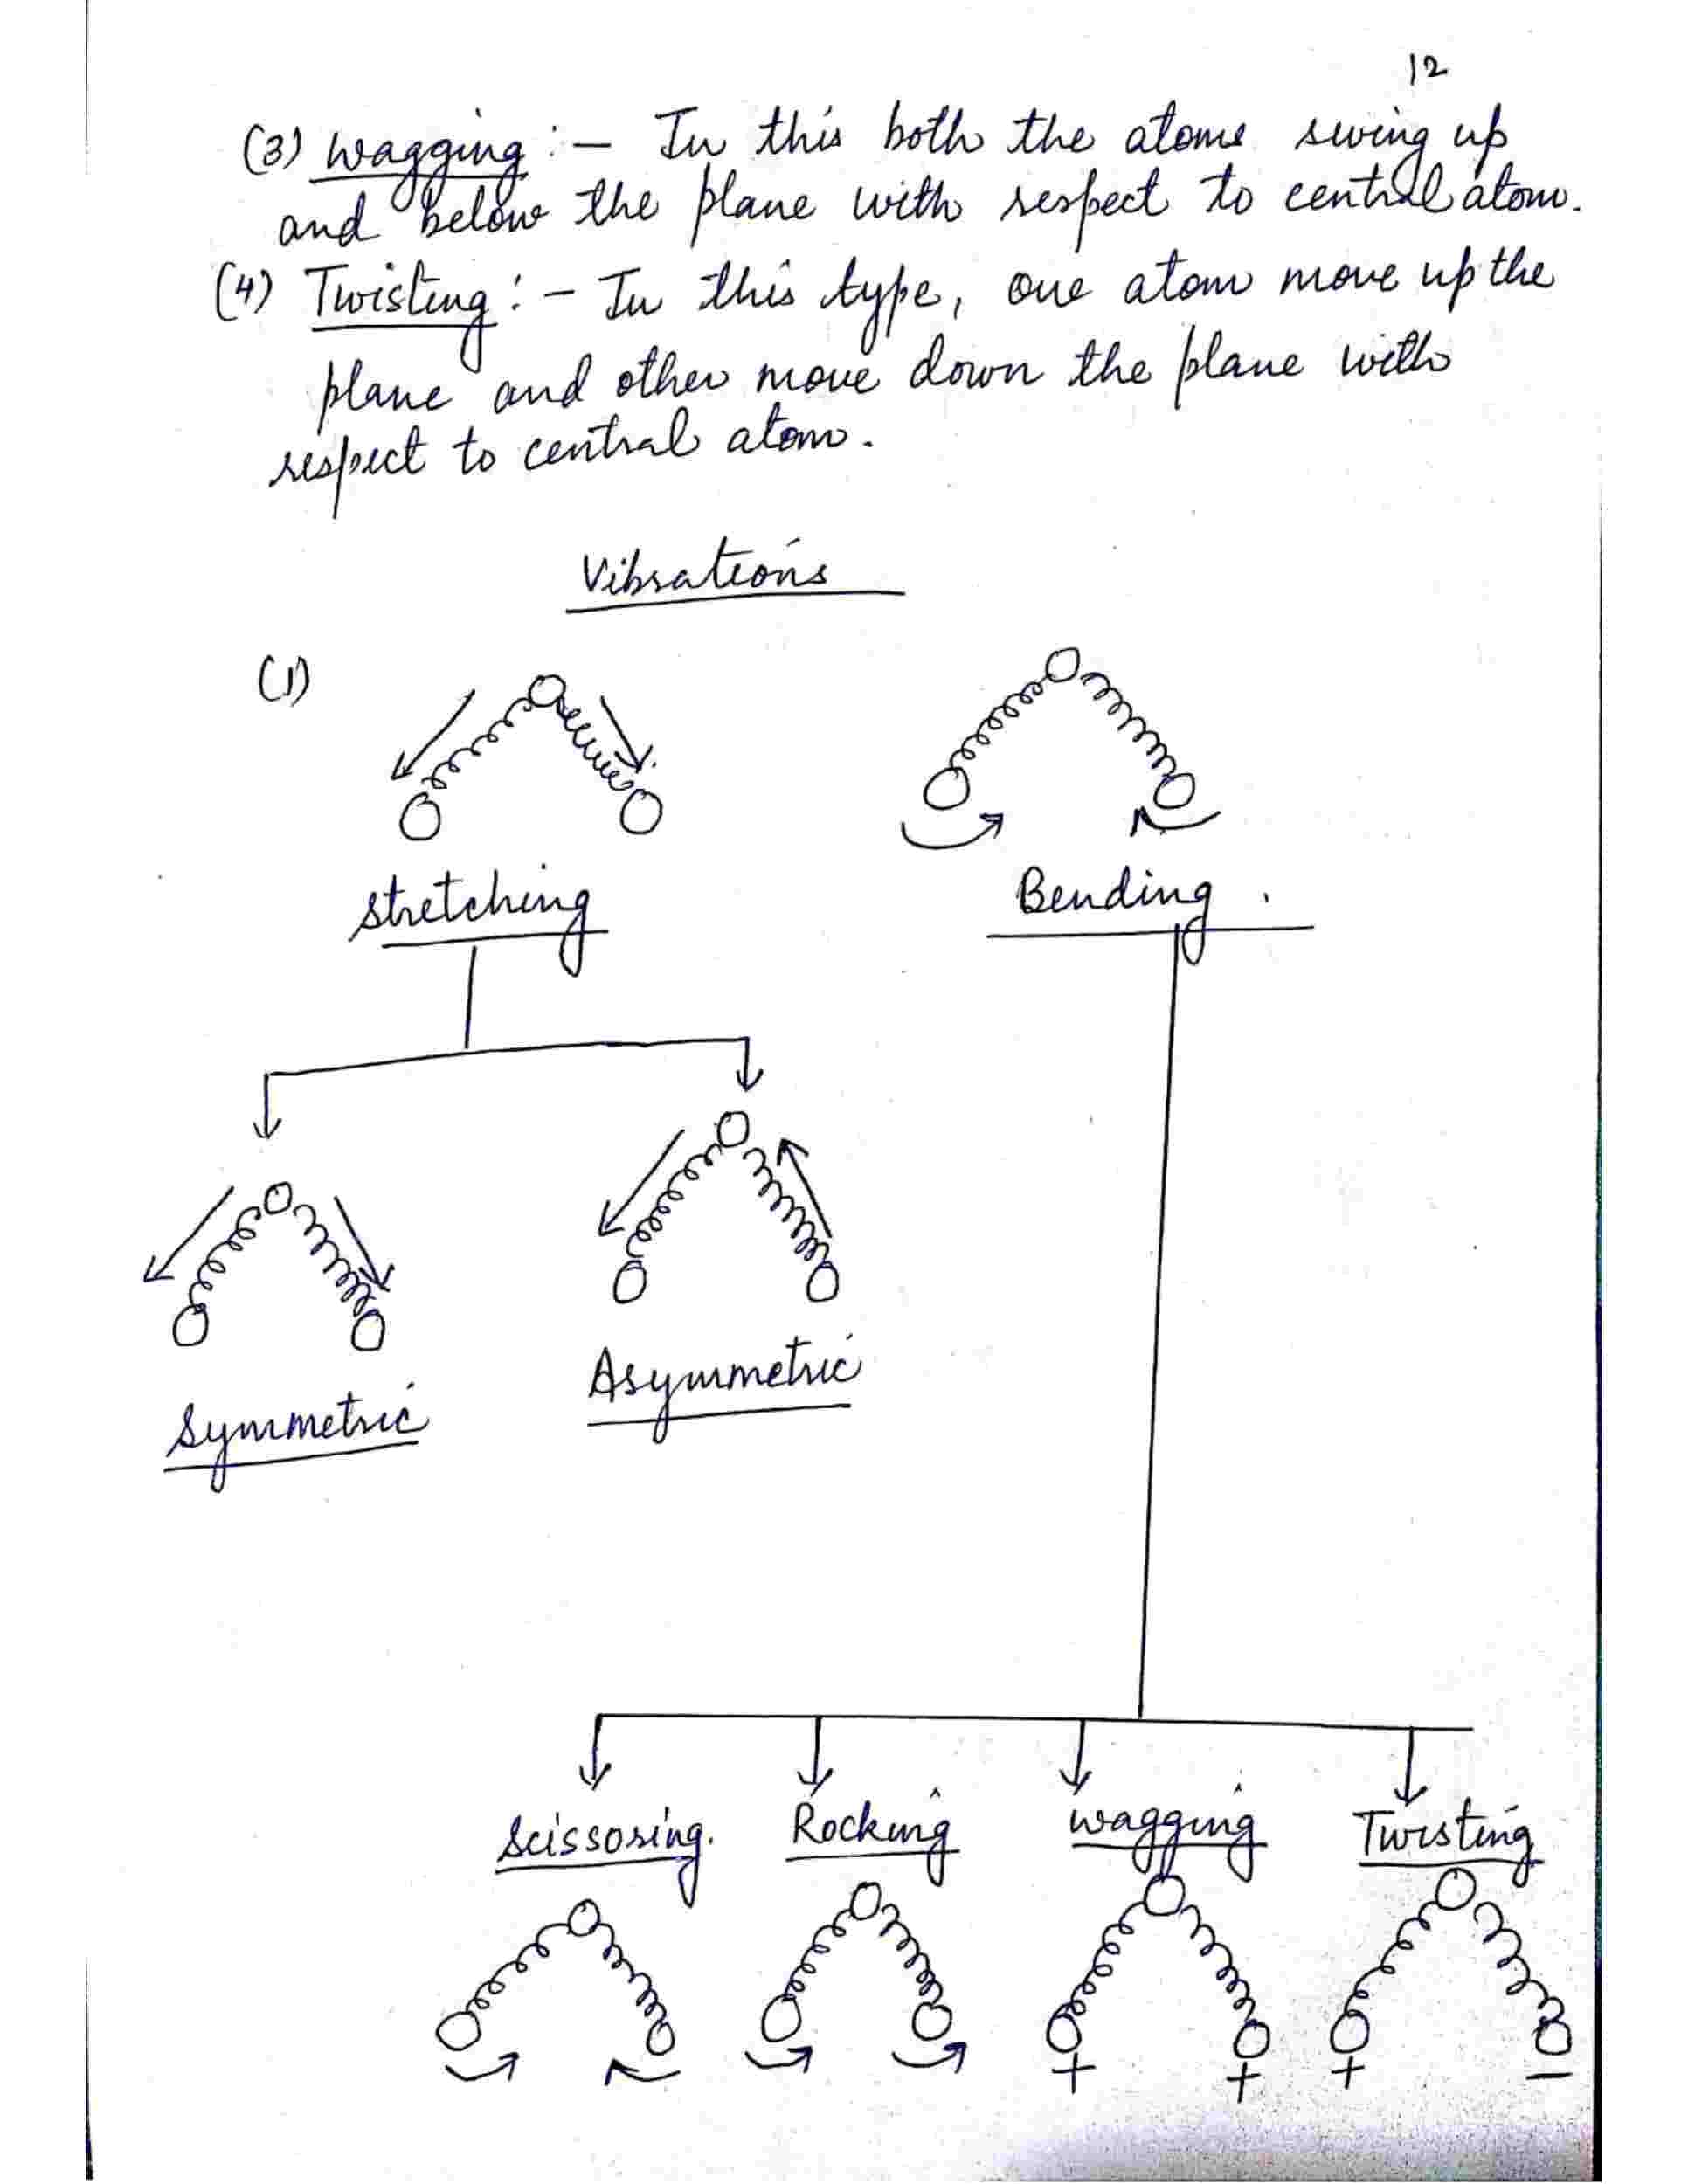 12
(3) wagging :- In this both the atoms swing up
and below the plane with respect to central atom.
(4) Twisting :- In this type, one atom move up the
plane and other move down the plane with
respect to central atom.
Vibrations
(1)
stretching
Bending.
Symmetric
Asymmetric
Scissoring.
Rocking
wagging
Twisting
+
+
+
-